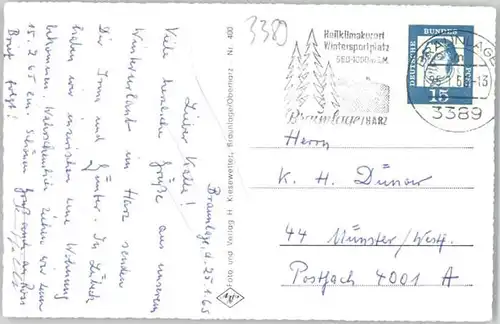 3380
Braunlage, d. 25.1.65
Lieber Kalle!
Viele herzliche Grüße aus unserem
Winterurlaub im Harz senden
Dir Irmi und Günter. In Lübeck
haben wir inzwischen eine Wohnung
bekommen. Wahrscheinlich ziehen wir zum
15.2.65 ein. Schönen Gruß auch an
Brief folgt!
Foto und Verlag H. Kiesewetter, Braunlage/Oberharz Nr. 400
Heilklimakurort
Wintersportplatz
560-1000 m ü.M.
Braunlage/HARZ
BRAUNLAGE
3389
DEUTSCHE
BUNDES
POST
15
Herrn
K. H. Dünser
44 Münster/Westf.
Postfach 4001 A